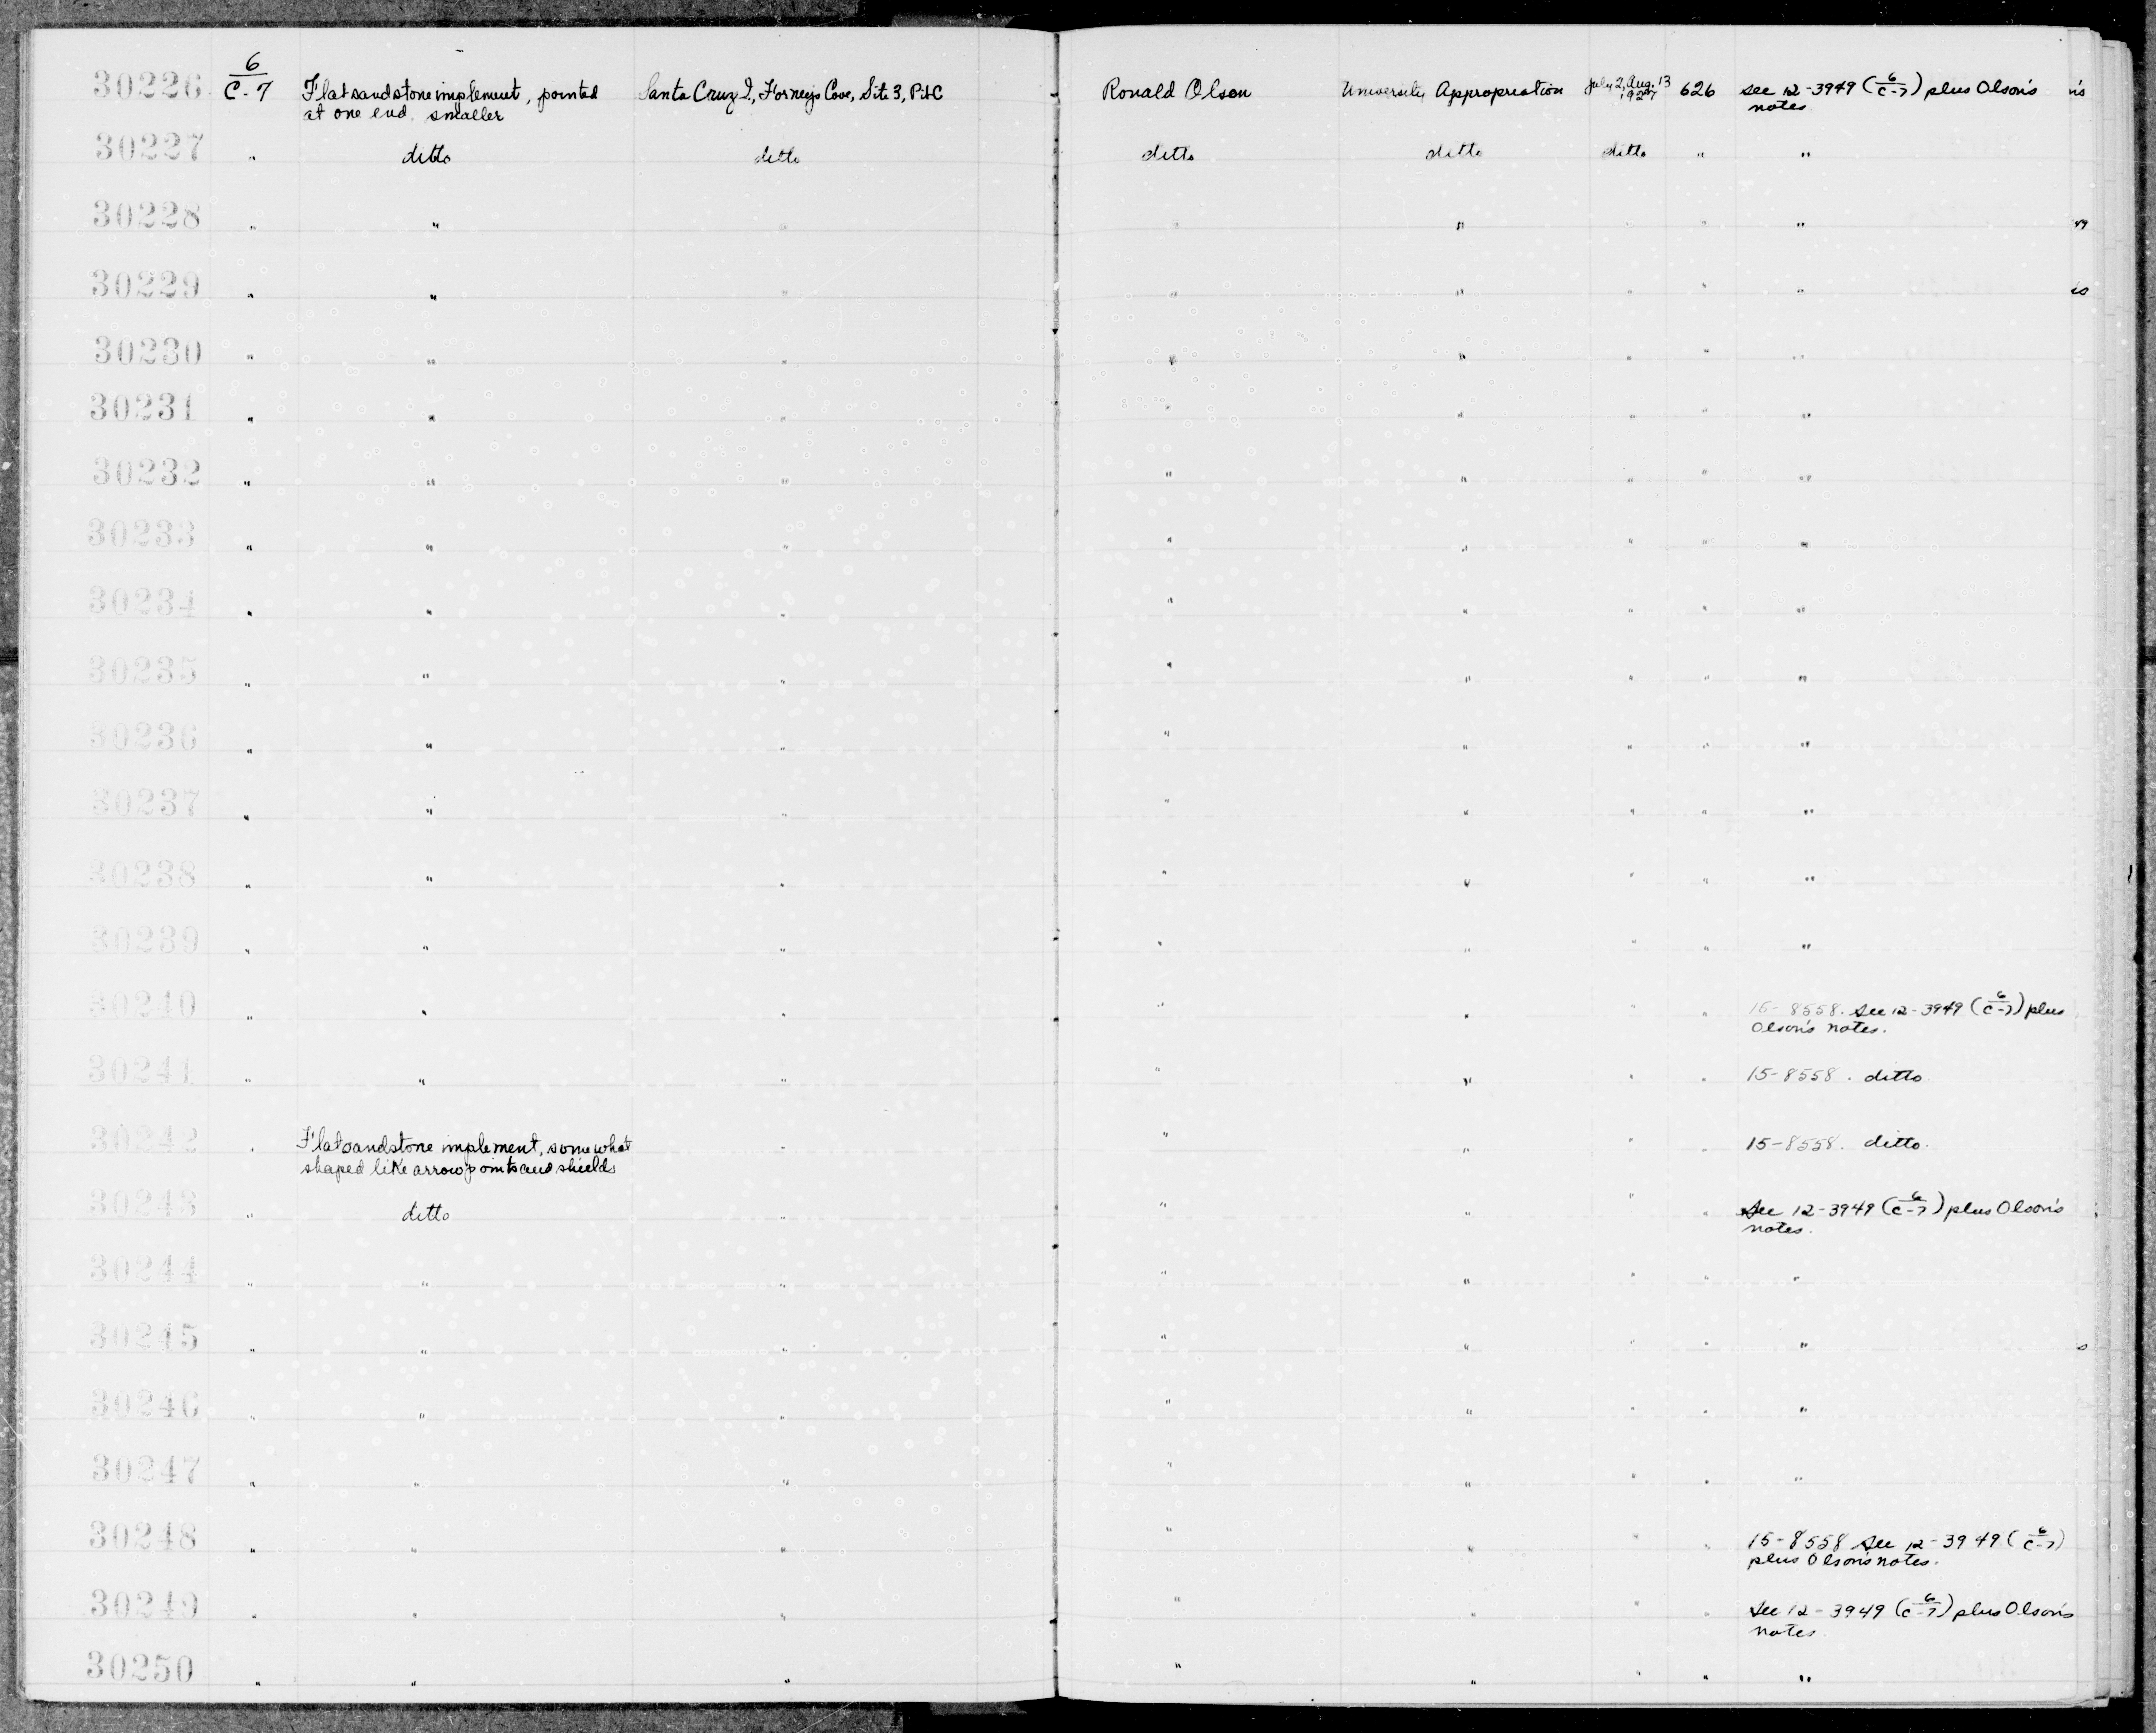 30226 6/C-7 Flat sandstone implement, pointed Santa Cruz I., Forney's Cove, Site 3, Pit C Ronald Olson University Appropriation July 2, Aug. 13 626 see 12-3949 (6/C-7) plus Olson's
at one end. smaller 1927 notes.
30227 " ditto ditto ditto ditto ditto " "
30228 " " " " " " " "
30229 " " " " " " " "
30230 " " " " " " " "
30231 " " " " " " " "
30232 " " " " " " " "
30233 " " " " " " " "
30234 " " " " " " " "
30235 " " " " " " " "
30236 " " " " " " " "
30237 " " " " " " " "
30238 " " " " " " " "
30239 " " " " " " " "
30240 " " " " " " " 15-8558. See 12-3949 (6/C-7) plus
Olson's notes.
30241 " " " " " " " 15-8558. ditto
30242 " Flat sandstone implement, somewhat " " " " " 15-8558. ditto.
shaped like arrow points and shields
30243 " ditto " " " " " See 12-3949 (6/C-7) plus Olson's
notes.
30244 " " " " " " " "
30245 " " " " " " " "
30246 " " " " " " " "
30247 " " " " " " " "
30248 " " " " " " " 15-8558 See 12-3949 (6/C-7)
plus Olson's notes.
30249 " " " " " " " See 12-3949 (6/C-7) plus Olson's
notes.
30250 " " " " " " " "